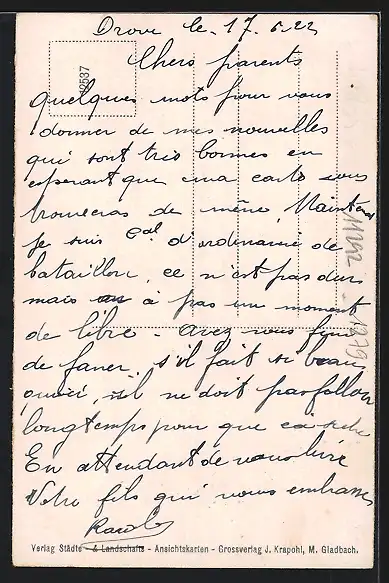 Drove le 17.6.22
12537
Chers parents
Quelques mots pour vous
donner de mes nouvelles
qui sont très bonnes en
espérant que ma carte vous
trouveras de même. Mainten
je suis cal d'ordinaire de
bataillon, ce n'est pas dur
mais à pas un moment
de libre - avez vous fini
de faner, s'il fait si beau
qu'ici, il ne doit pas falloir
longtemps pour que ça sèche
En attendant de vous lire
Votre fils qui vous embrasse
Raoul
Verlag Städte - & Landschafts - Ansichtskarten - Grossverlag J. Krapohl, M. Gladbach.